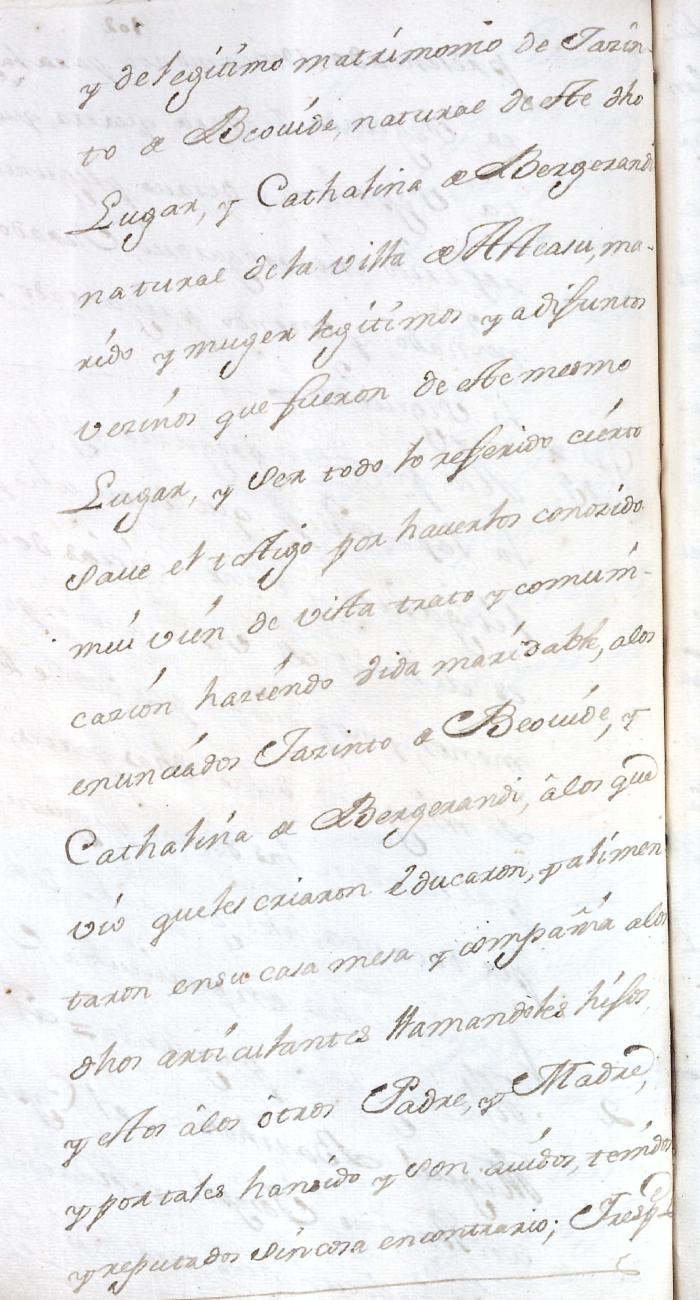 y de legitimo matrimonio de Jazin-
to de Beovide, natural de este dho
Lugar, y Cathalina de Bergerandi
natural de la villa de Alleasu, ma-
rido y muger legitimos y adifuntos
vezinos que fueron de este mesmo
Lugar, y ser todo lo refferido cierto
save el testigo por haverlos conozido
mui vien de vista trato y comuni-
cazion haziendo vida maridable, alos
enunciados Jazinto de Beovide, y
Cathalina de Bergerandi, âlos que
vió queles criaron educaron, y alimen
taron ensu casa mesa y compañia alos
dhos articulantes llamandoles hijos,
y estos âlos ôtros Padre, y Madre,
y por tales hansido y son avidos, tenidos
y reputados sin cosa en contrario; Y resp.